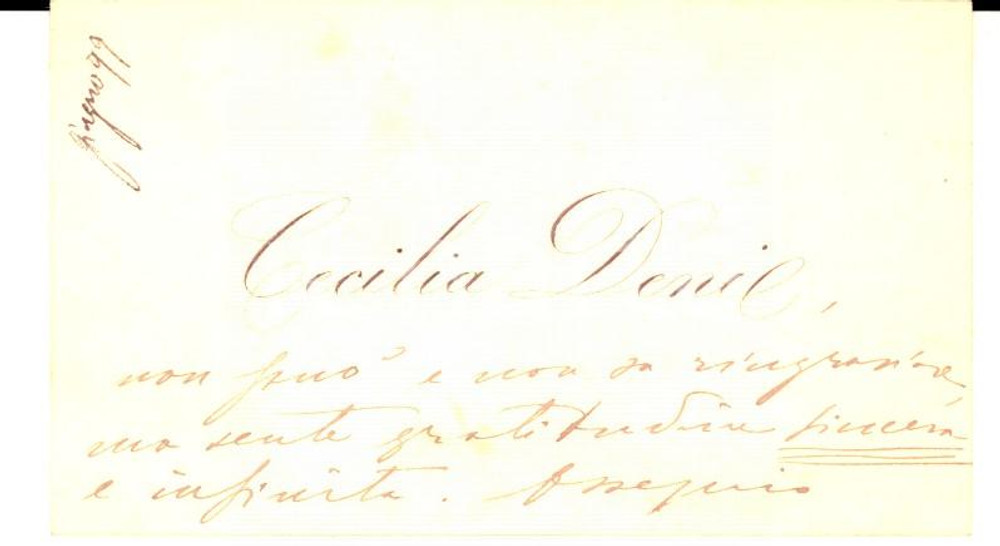 Cecilia Denil,
non può e non sa ringraziare,
ma sente gratitudine sincera
e infinita. Ossequio